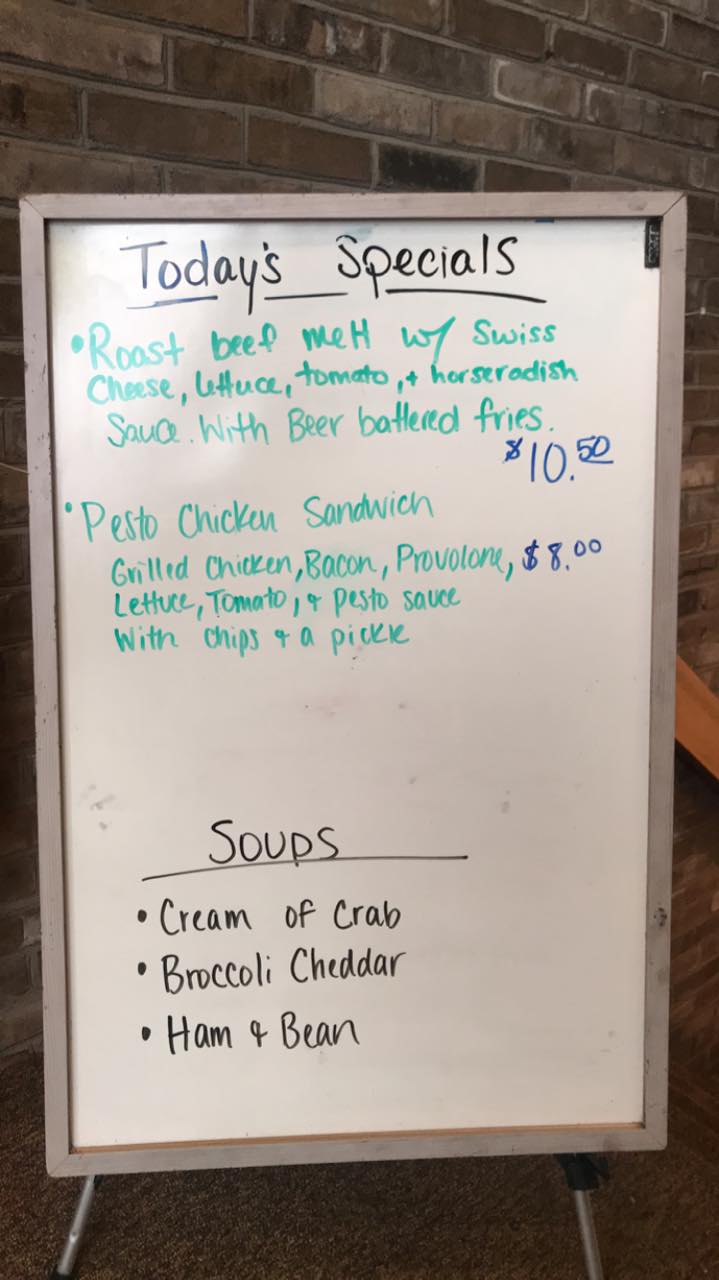 Today's Specials
• Roast beef melt w/ Swiss
Cheese, lettuce, tomato, + horseradish
Sauce. With Beer battered fries.
$10.50
• Pesto Chicken Sandwich
Grilled Chicken, Bacon, Provolone, $8.00
Lettuce, Tomato, & Pesto sauce
With chips & a pickle
Soups
• Cream of Crab
• Broccoli Cheddar
• Ham & Bean